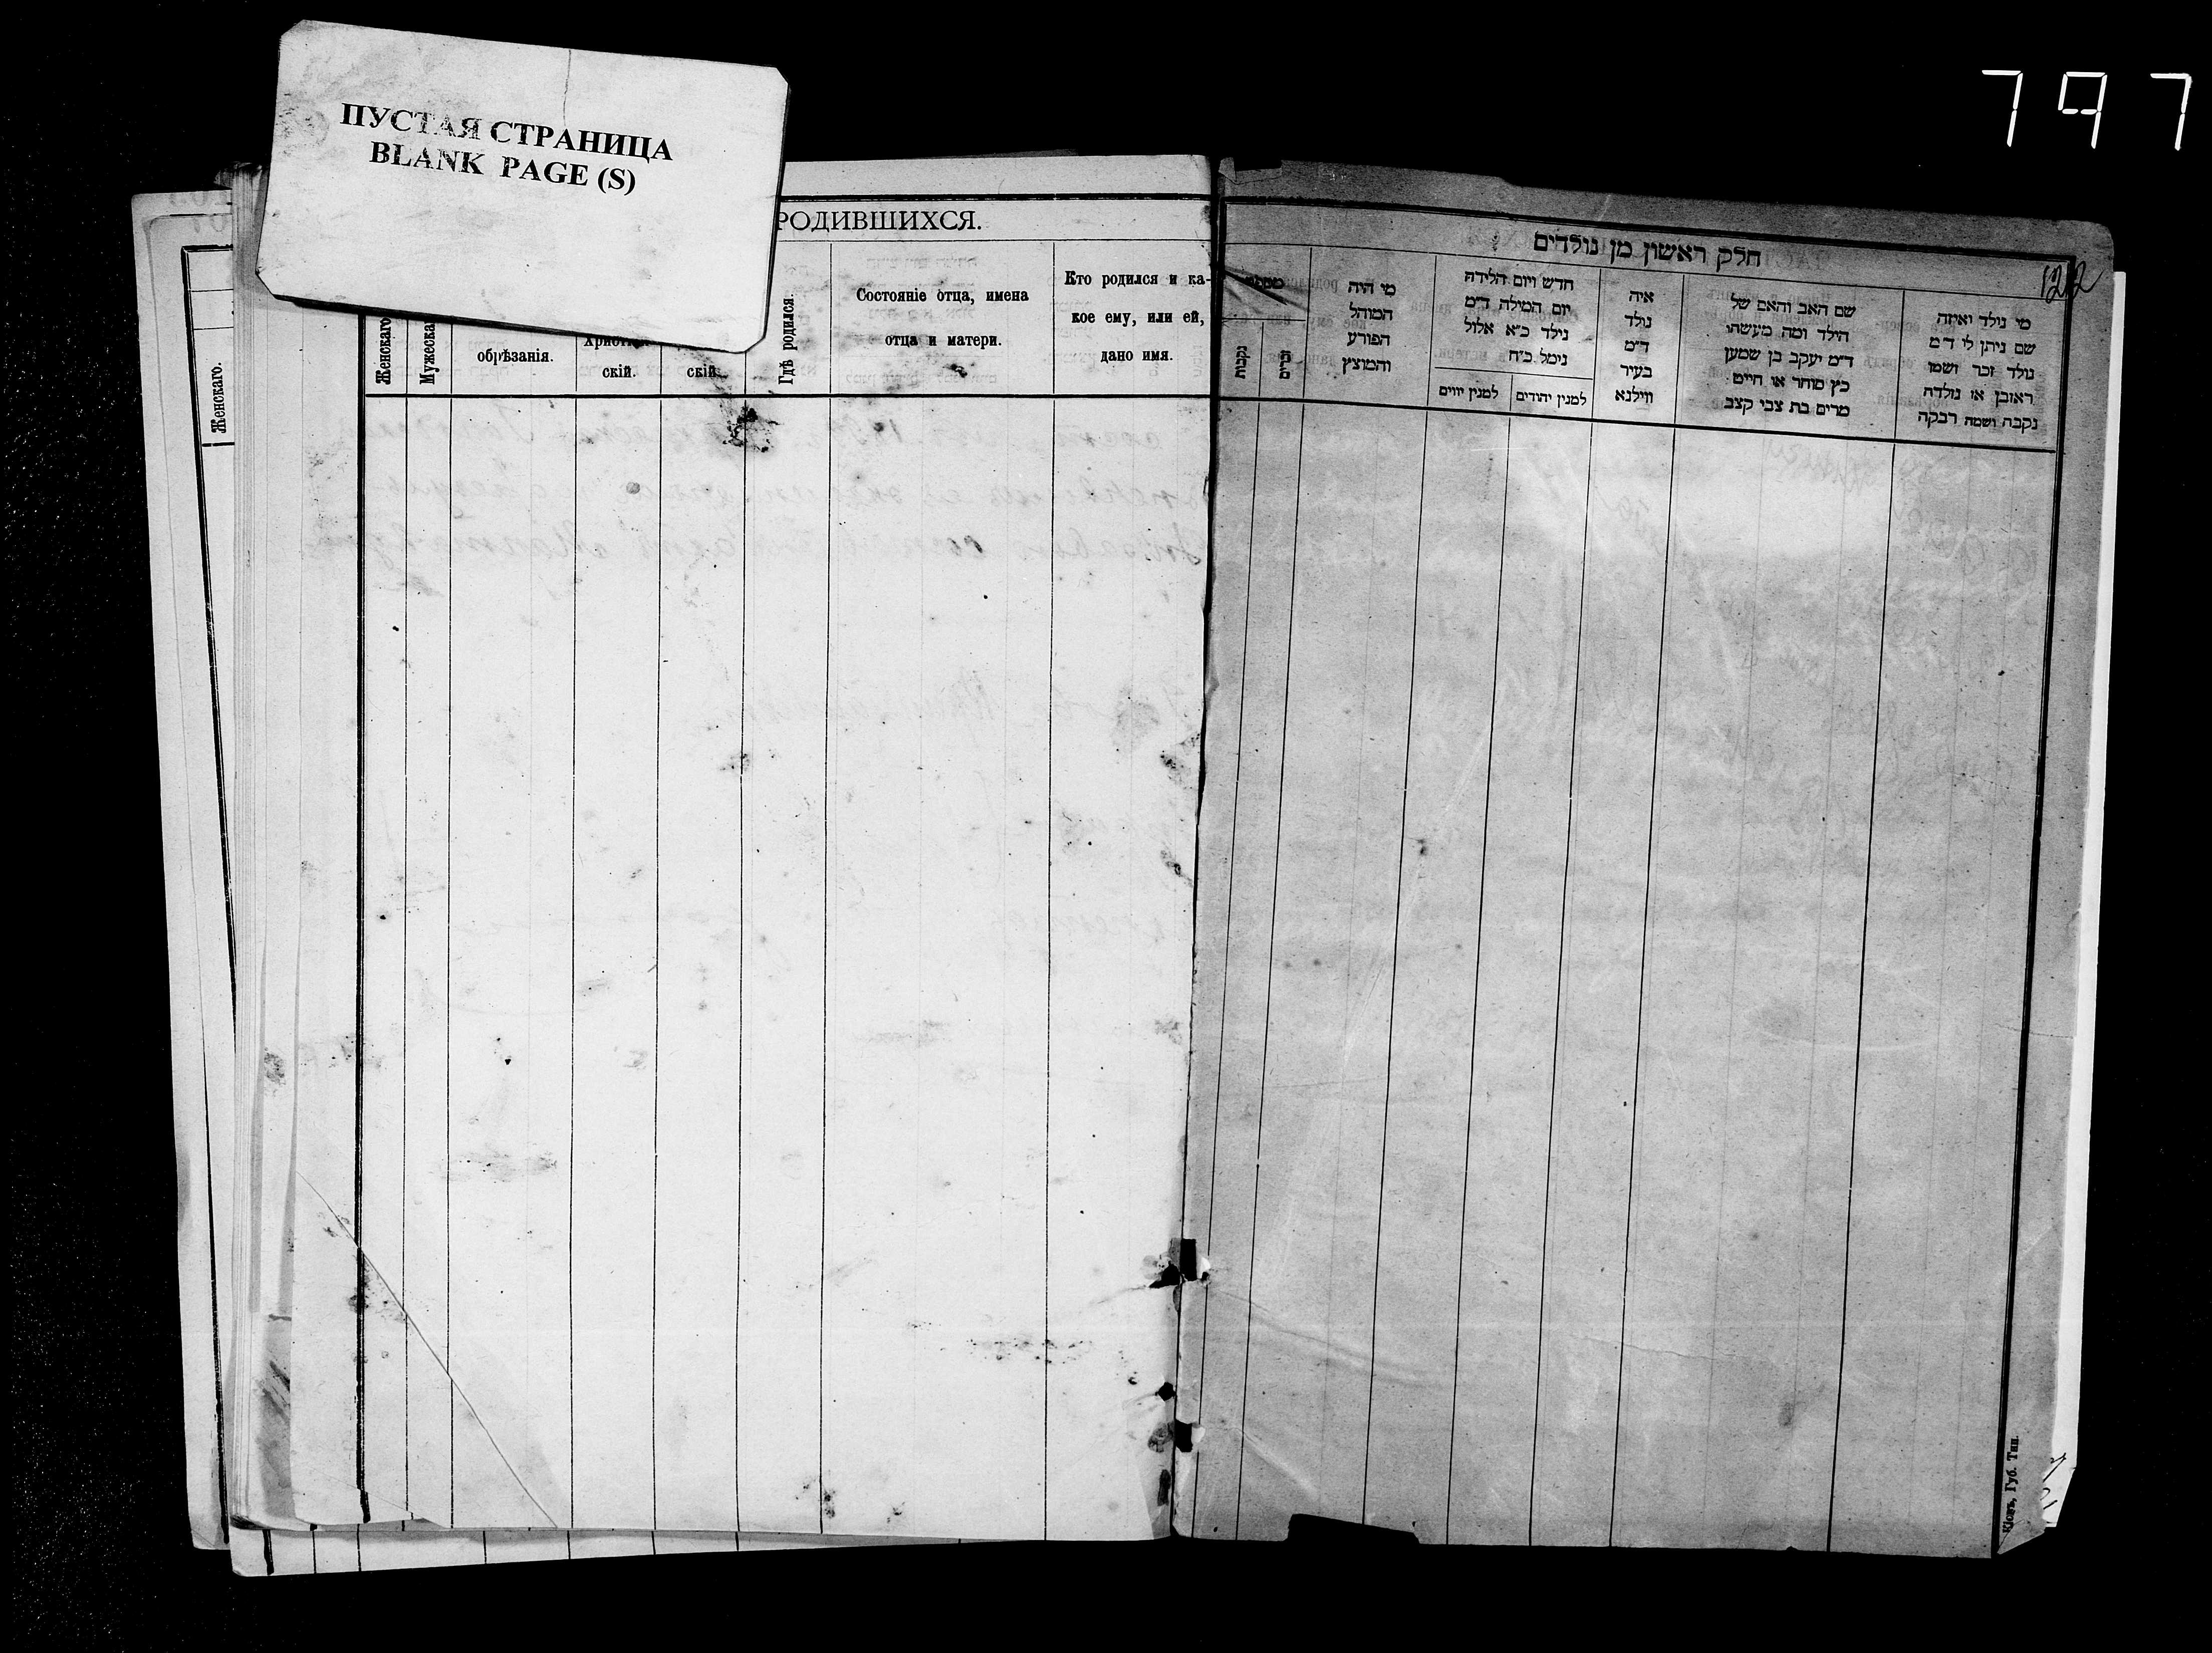 797
ПУСТАЯ СТРАНИЦА
BLANK PAGE (S)
РОДИВШИХСЯ.
Женскаго.
Женскаго
Мужеска
обрѣзанія.
скій.
скій.
Гдѣ родился.
Состояніе отца, имена
отца и матери.
Кто родился и ка-
кое ему, или ей,
дано имя.
חלק ראשון מן נולדים
122
נקבות
זכרים
מי היה
המוהל
הפורע
והמוצץ
חדש ויום הלידה
יום המילה ד״מ
נילד כ״א אלול
נימל כ״ח
למנין יווים
למנין יהודים
איה
נולד
ד״מ
בעיר
ווילנא
שם האב והאם של
הילד ומה מעשהו
ד״מ יעקב בן שמען
כץ סוחר או חייט
מרים בת צבי קצב
מי נולד ואיזה
שם ניתן לו ד״מ
נולד זכר ושמו
ראובן או נולדה
נקבה ושמה רבקה
Кіевъ, Губ. Тип.